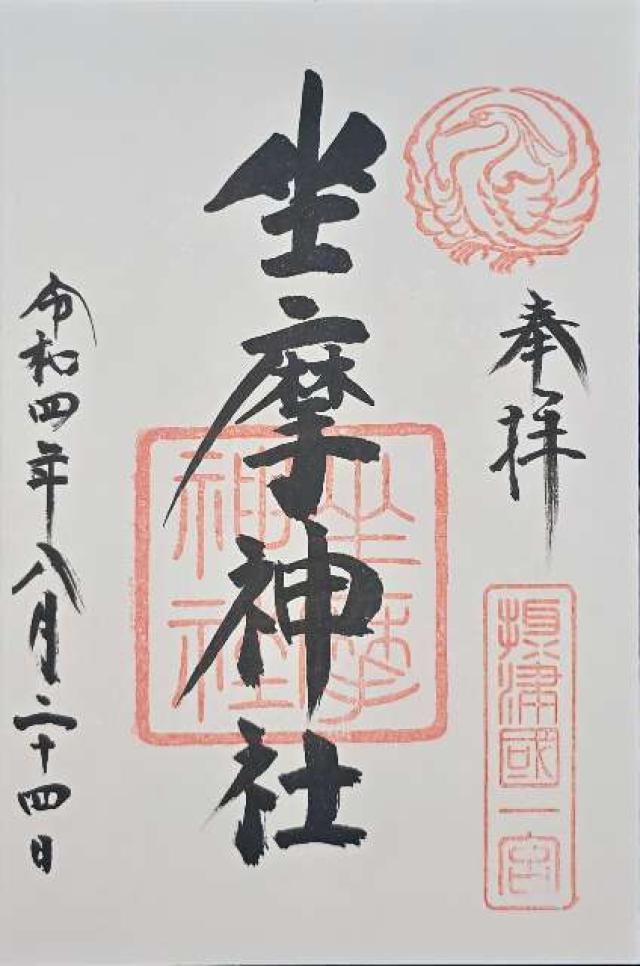 奉拝
摂津國一宮
坐摩神社
坐摩神社
令和四年八月二十四日